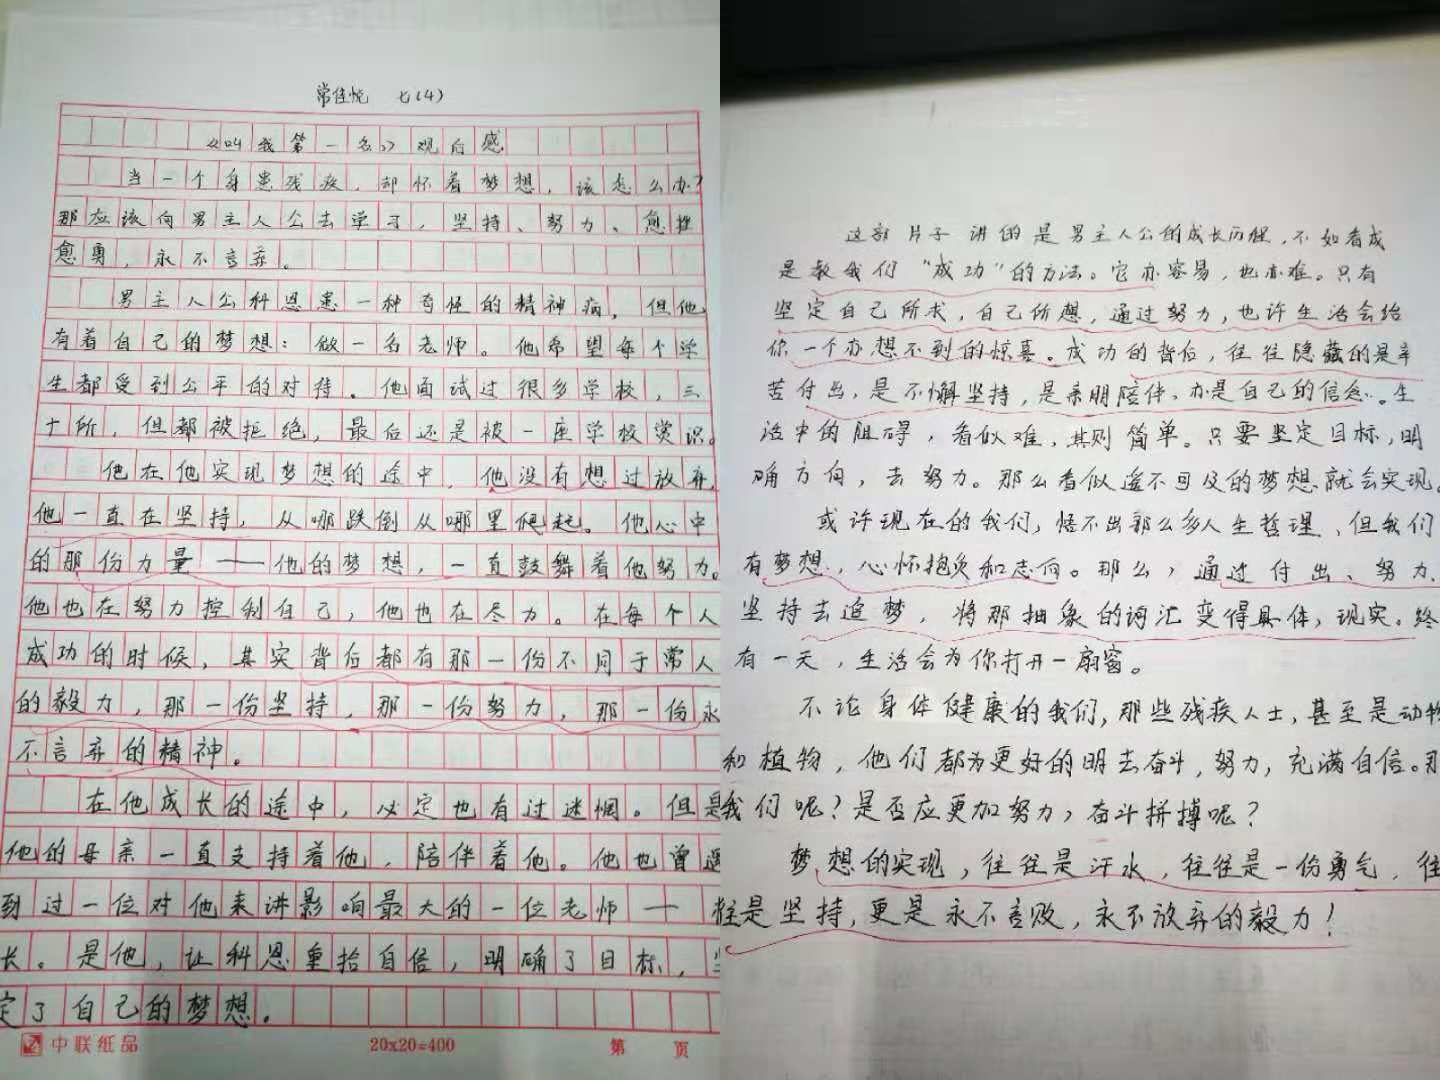 常佳悦 七(4)
《叫我第一名》观后感
当一个身患残疾，却怀着梦想，该怎么办？
那应该向男主人公去学习，坚持、努力、愈挫
愈勇，永不言弃。
男主人公科恩患一种奇怪的精神病，但他
有着自己的梦想：做一名老师。他希望每个学
生都受到公平的对待。他面试过很多学校，三
十所，但都被拒绝，最后还是被一座学校赏识。
他在他实现梦想的途中，他没有想过放弃，
他一直在坚持，从哪跌倒从哪里爬起。他心中
的那份力量——他的梦想，一直鼓舞着他努力。
他也在努力控制自己，他也在尽力。在每个人
成功的时候，其实背后都有那一份不同于常人
的毅力，那一份坚持，那一份努力，那一份永
不言弃的精神。
在他成长的途中，必定也有过迷惘。但是
他的母亲一直支持着他，陪伴着他。他也曾遇
到过一位对他来讲影响最大的一位老师——校
长。是他，让科恩重拾自信，明确了目标，坚
定了自己的梦想。
中联纸品 20x20=400 第 页
这部片子讲的是男主人公的成长历程，不如看成
是教我们“成功”的方法。它亦容易，也亦难。只有
坚定自己所求，自己所想，通过努力，也许生活会给
你一个亦想不到的惊喜。成功的背后，往往隐藏的是辛
苦付出，是不懈坚持，是亲朋陪伴，亦是自己的信念。生
活中的阻碍，看似难，其则简单。只要坚定目标，明
确方向，去努力。那么看似遥不可及的梦想就会实现。
或许现在的我们，悟不出那么多人生哲理，但我们
有梦想，心怀抱负和志向。那么，通过付出、努力、
坚持去追梦，将那抽象的词汇变得具体，现实。终
有一天，生活会为你打开一扇窗。
不论身体健康的我们，那些残疾人士，甚至是动物
和植物，他们都为更好的明去奋斗，努力，充满自信。那
我们呢？是否应更加努力，奋斗拼搏呢？
梦想的实现，往往是汗水，往往是一份勇气，往
往是坚持，更是永不言败，永不放弃的毅力！